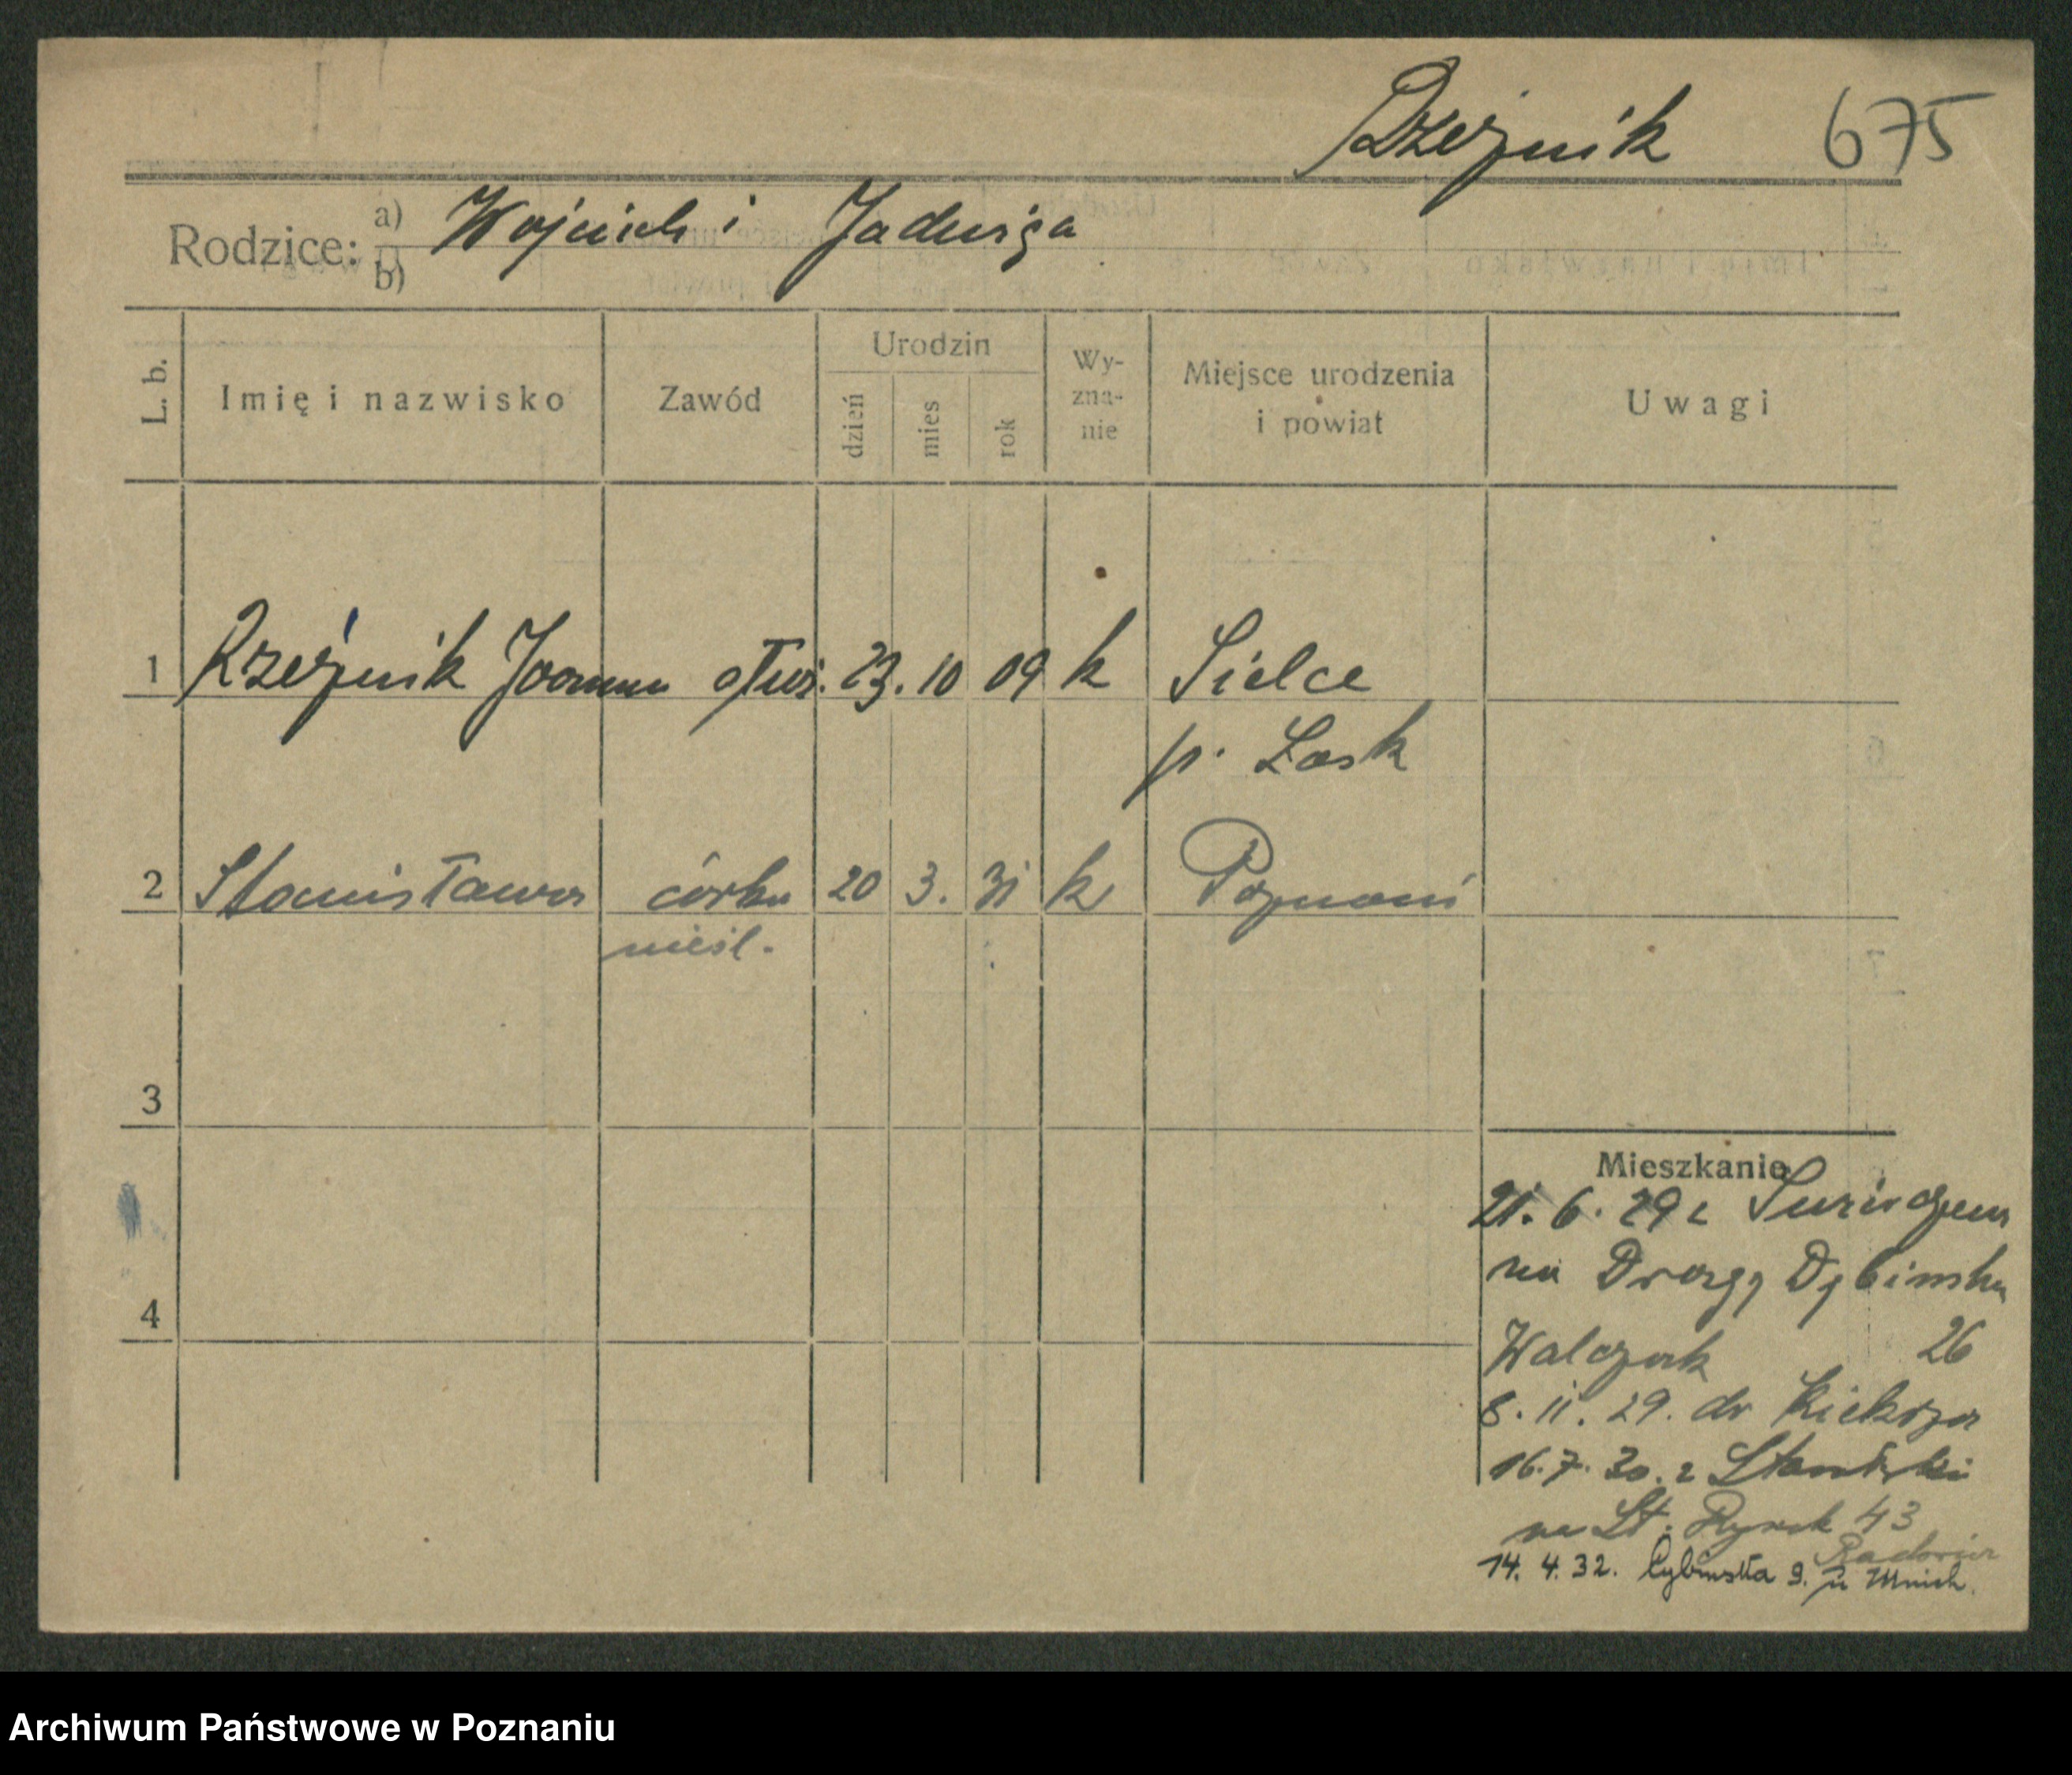 Rzeźnik 675
Rodzice: a) Wojciech i Jadwiga
b)
L. b. Imię i nazwisko Zawód Urodzin dzień mies rok Wy-zna-nie Miejsce urodzenia i powiat Uwagi
1 Rzeźnik Joanna służ. 23. 10 09 k Sielce
p. Łask
2 Stanisława córka 20 3. 31 k Poznań
nieśl.
3
Mieszkanie
21. 6. 29 z
na Drogę Dębińską
4
Walczak 26
8. 11. 29. do Kiekrza
16. 7. 30. z
na St. Rynek 43
14. 4. 32. Rybińska 9. u Mnich.
Archiwum Państwowe w Poznaniu